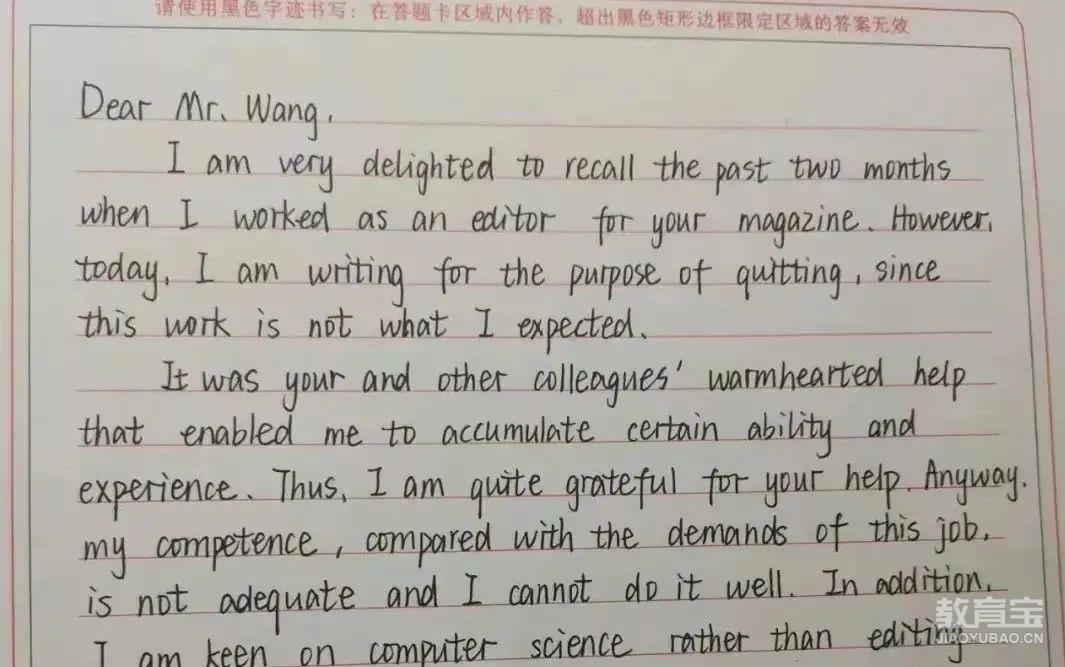 请使用黑色字迹书写：在答题卡区域内作答，超出黑色矩形边框限定区域的答案无效
Dear Mr. Wang,
I am very delighted to recall the past two months
when I worked as an editor for your magazine. However,
today, I am writing for the purpose of quitting, since
this work is not what I expected.
It was your and other colleagues' warmhearted help
that enabled me to accumulate certain ability and
experience. Thus, I am quite grateful for your help. Anyway,
my competence, compared with the demands of this job,
is not adequate and I cannot do it well. In addition,
I am keen on computer science rather than editing
教育宝
JIAOYUBAO.CN